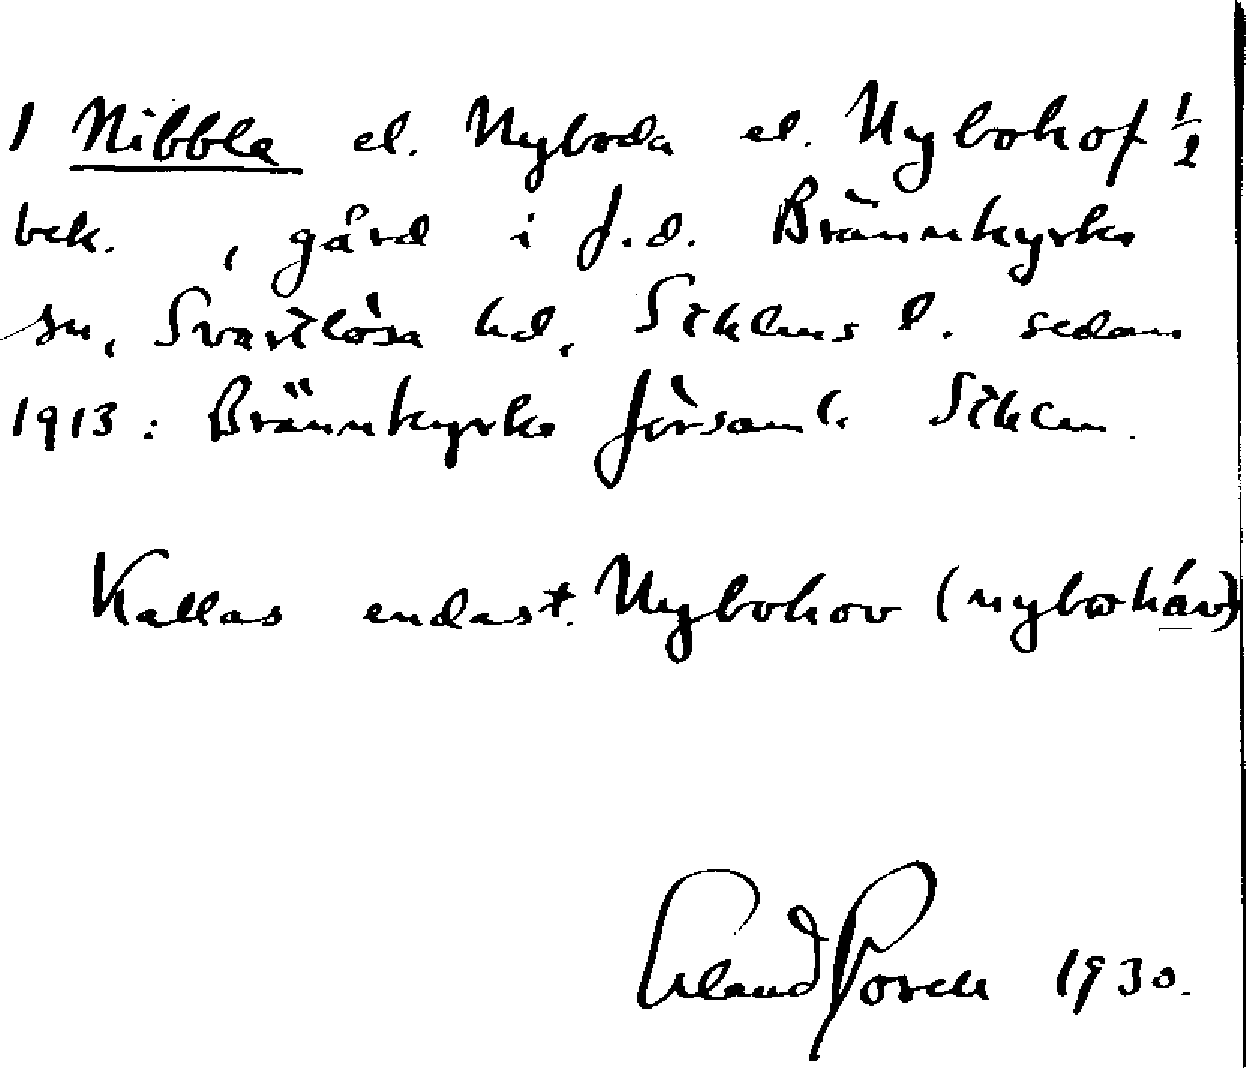 1 Nibble el. Nyboda el. Nybohof ½
bek. , gård i f.d. Brännkyrka
sn, Svartlösa hd, Sthlms l. sedan
1913: Brännkyrka församl. Sthlm.
Kallas endast Nybohov (nybohȧv)
Erland 1930.